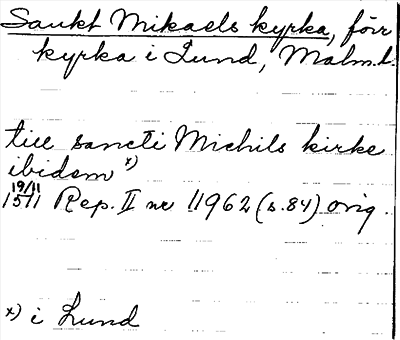 Sankt Mikaels kyrka, förr
kyrka i Lund, Malm.l.
till sancti Michils kirke
ibidem x)
19/11 1511 Rep. II nr 11962 (s.84) orig.
x) i Lund